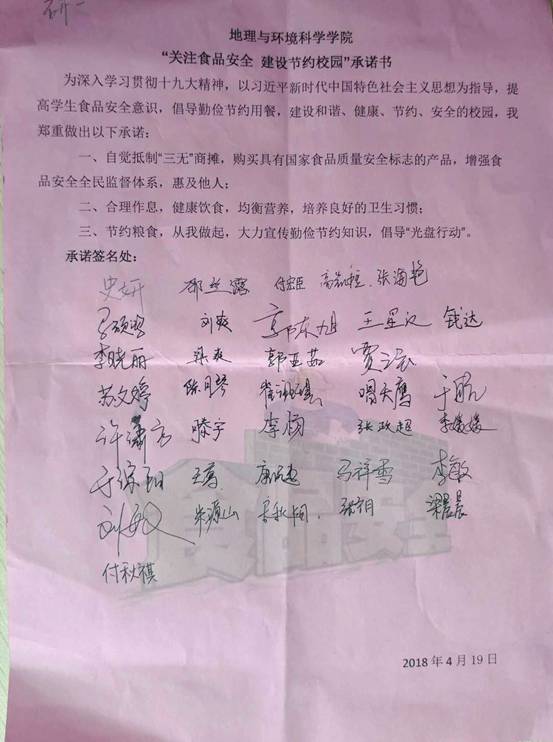 研一
地理与环境科学学院
“关注食品安全 建设节约校园”承诺书
为深入学习贯彻十九大精神，以习近平新时代中国特色社会主义思想为指导，提
高学生食品安全意识，倡导勤俭节约用餐，建设和谐、健康、节约、安全的校园，我
郑重做出以下承诺：
一、自觉抵制“三无”商摊，购买具有国家食品质量安全标志的产品，增强食
品安全全民监督体系，惠及他人；
二、合理作息，健康饮食，均衡营养，培养良好的卫生习惯；
三、节约粮食，从我做起，大力宣传勤俭节约知识，倡导“光盘行动”。
承诺签名处：
史妍 邵丝露 付宏臣 张海艳
刘爽 郭东旭 王星汉 钱达
李晓丽 郭亚茹
苏文婷 陈月琴 于凡
滕宇 李杨 张政超
马祥雪 李敏
刘敏 朱源山 梁晨晨
付秋祺
食品安全
2018 年 4 月 19 日